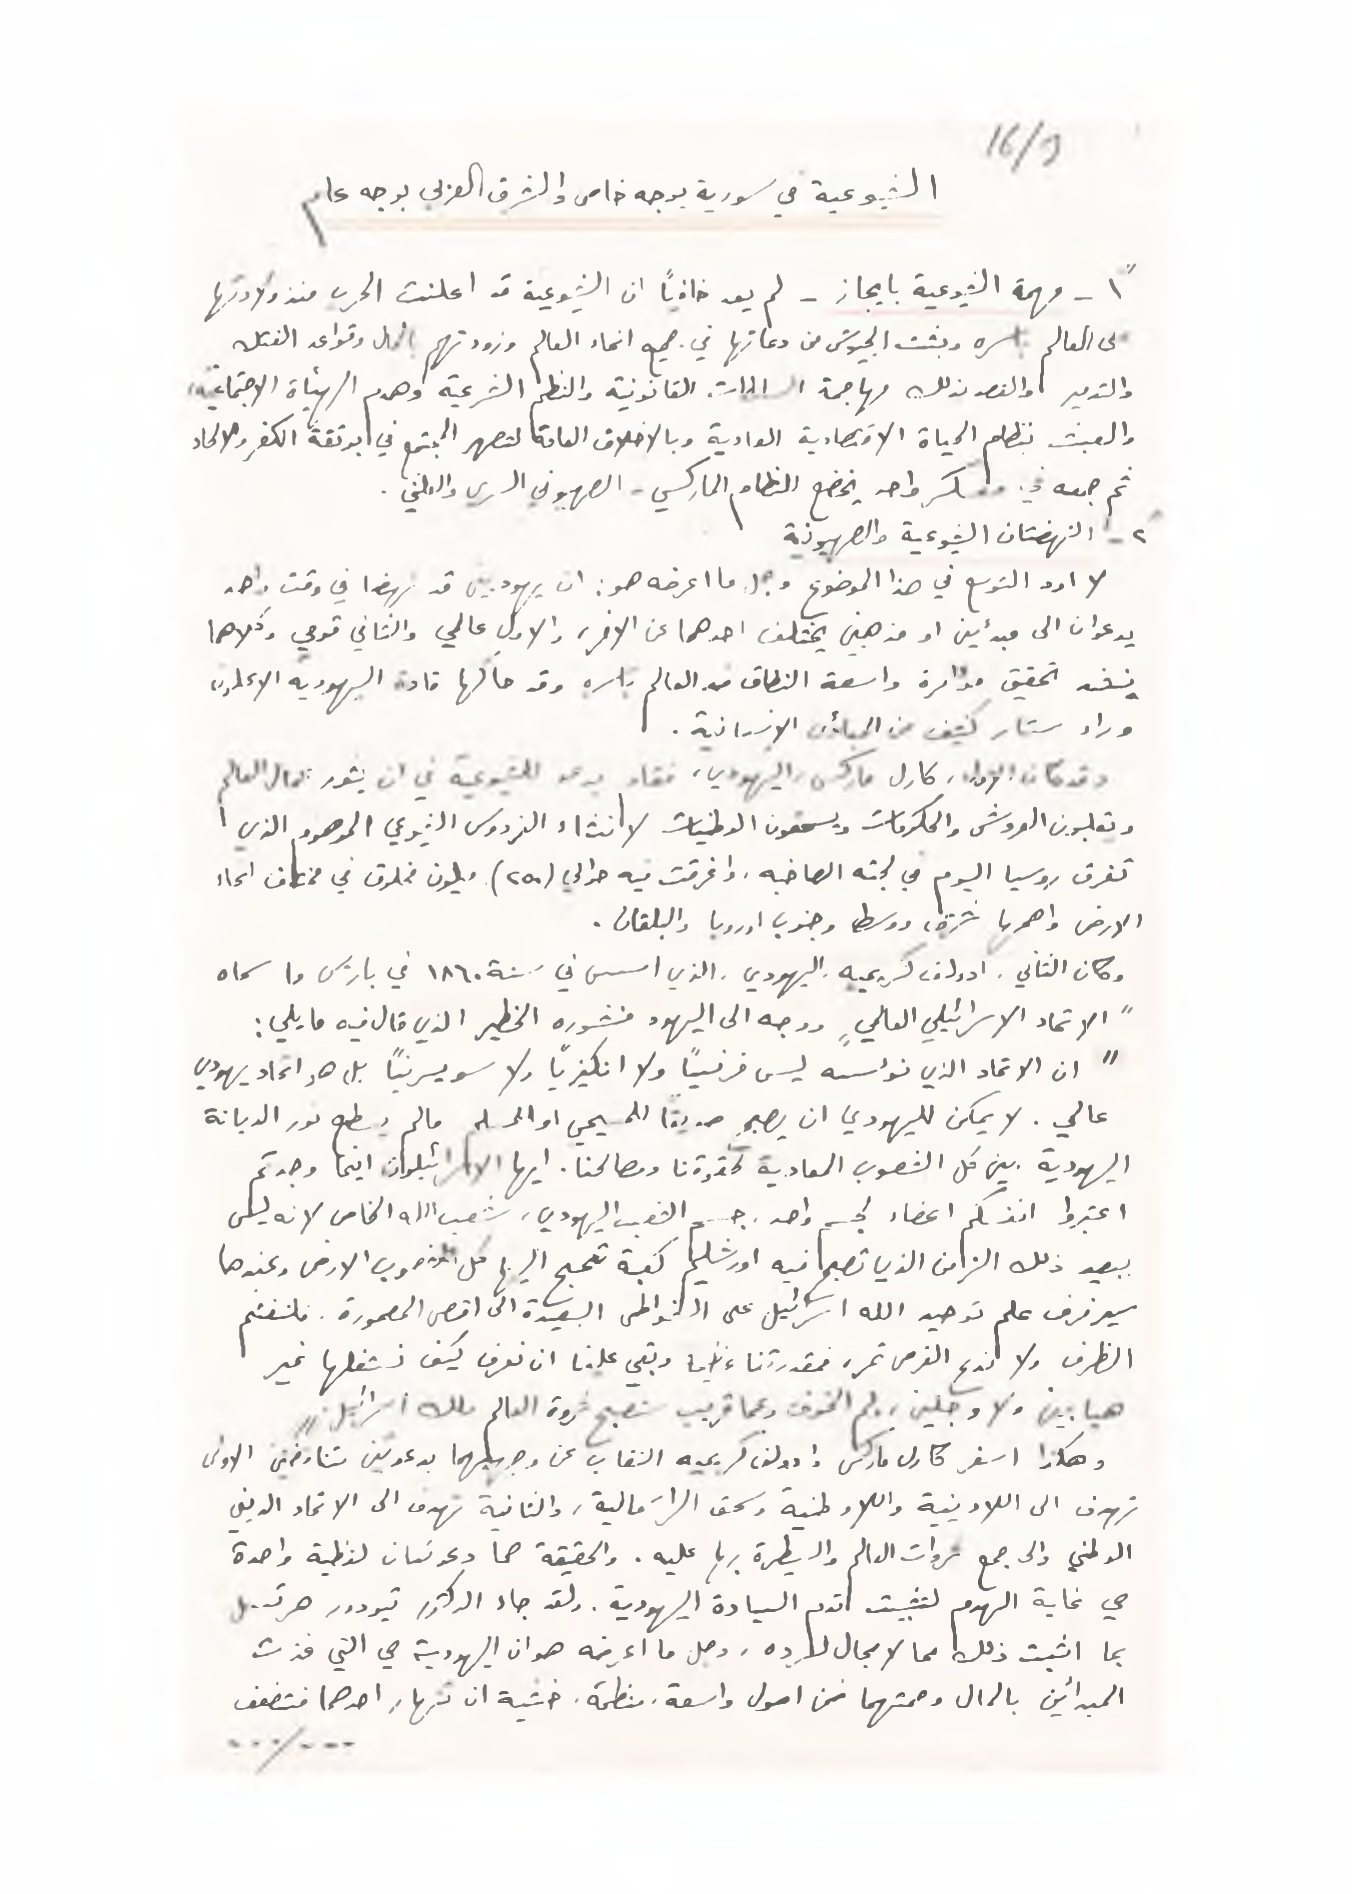 16/9
الشيوعية في سورية بوجه خاص والشرق العربي بوجه عام
١ً - مهمة الشيوعية بايجاز - لم يعد خافياً ان الشيوعية قد اعلنت الحرب منذ ولادتها
على العالم باسره وبثت الجيوش من دعاتها في جميع انحاء العالم وزودتهم بالمال وقواعد الفتك
والتدمير والقصد بذلك مهاجمة السلطات القانونية والنظم الشرعية وهدم الهيئاة الاجتماعية،
والعبث بنظام الحياة الاقتصادية العادية وبالاخلاق العامة لتصهر المجتمع في بوتقة الكفر والالحاد
ثم جمعه في معسكر واحد يخضع للنظام الماركسي - الصهيوني السري والعلني .
٢ً - النهضتان الشيوعية والصهيونية
لا اود التوسع في هذا الموضوع وجل ما اعرضه هو: ان يهوديين قد نهضا في وقت واحد
يدعوان الى مبدأين او مذهبين يختلف احدهما عن الاخر، والاول عالمي والثاني قومي وكلاهما
ينشد تحقيق مؤامرة واسعة النطاق ضد العالم باسره وقد حاكها قادة اليهودية الاعلون
وراء ستار كثيف من المبادئ الانسانية .
وقد كان الاول، كارل ماركس، اليهودي، فقام يدعو للشيوعية في ان يثور عمال العالم
ويقلبون العروش والحكومات ويسحقون الوطنيات لانشاء الفردوس الشيوعي الموهوم الذي
تغرق روسيا اليوم في لجته الصاخبه، واغرقت فيه حوالي (٢٥٠) مليون مخلوق في مختلف انحاء
الارض واهمها شرق ووسط وجنوب اوروبا والبلقان .
وكان الثاني، ادولف كريميه، اليهودي، الذي اسس في سنة ١٨٦٠ في باريس ما سماه
" الاتحاد الاسرائيلي العالمي " ووجه الى اليهود منشوره الخطير الذي قال فيه ما يلي :
" ان الاتحاد الذي نؤسسه ليس فرنسياً ولا انكليزياً ولا سويسرياً بل هو اتحاد يهودي
عالمي . لا يمكن لليهودي ان يصبح صديقاً للمسيحي او المسلم مالم يسطع نور الديانة
اليهودية بين كل الشعوب المعادية لحقوقنا ومصالحنا . ايها الاسرائيليون اينما وجدتم
اعتبروا انفسكم اعضاء لجسم واحد، جسم الشعب اليهودي، شعب الله الخاص لانه ليس
ببعيد ذلك الزمن الذي تصبح فيه اورشليم كعبة تحج اليها كل شعوب الارض وعندها
سيرفرف علم توحيد الله اسرائيل على الشواطئ البعيدة الى اقصى المعمورة . فلنغتنم
الظرف ولا ندع الفرص تمر، فمقدرتنا عظيمة وبقي علينا ان نعرف كيف نشغلها غير
هيابين ولا وجلين، ولم الخوف وعما قريب ستصبح ثروة العالم ملك اسرائيل . "
وهكذا اسفر كارل ماركس وادولف كريميه النقاب عن وجهيهما بدعوتين متناقضتين الاولى
تهدف الى اللادينية واللاوطنية وسحق الرأسمالية، والثانية تهدف الى الاتحاد الديني
الوطني والى جمع ثروات العالم والسيطرة بها عليه . والحقيقة هما دعوتان لغطية واحدة
هي غاية الهدم لتثبيت قدم السيادة اليهودية . ولقد جاء الدكتور تيودور هرتسل
بما اثبت ذلك مما لا مجال لرده، وجل ما اعرضه هو ان اليهودية هي التي غذت
المبدأين بالمال وحمتهما ضمن اصول واسعة، منظمة، خشية ان تنهار احدهما فتضعف
٠٠٠/٠٠٠